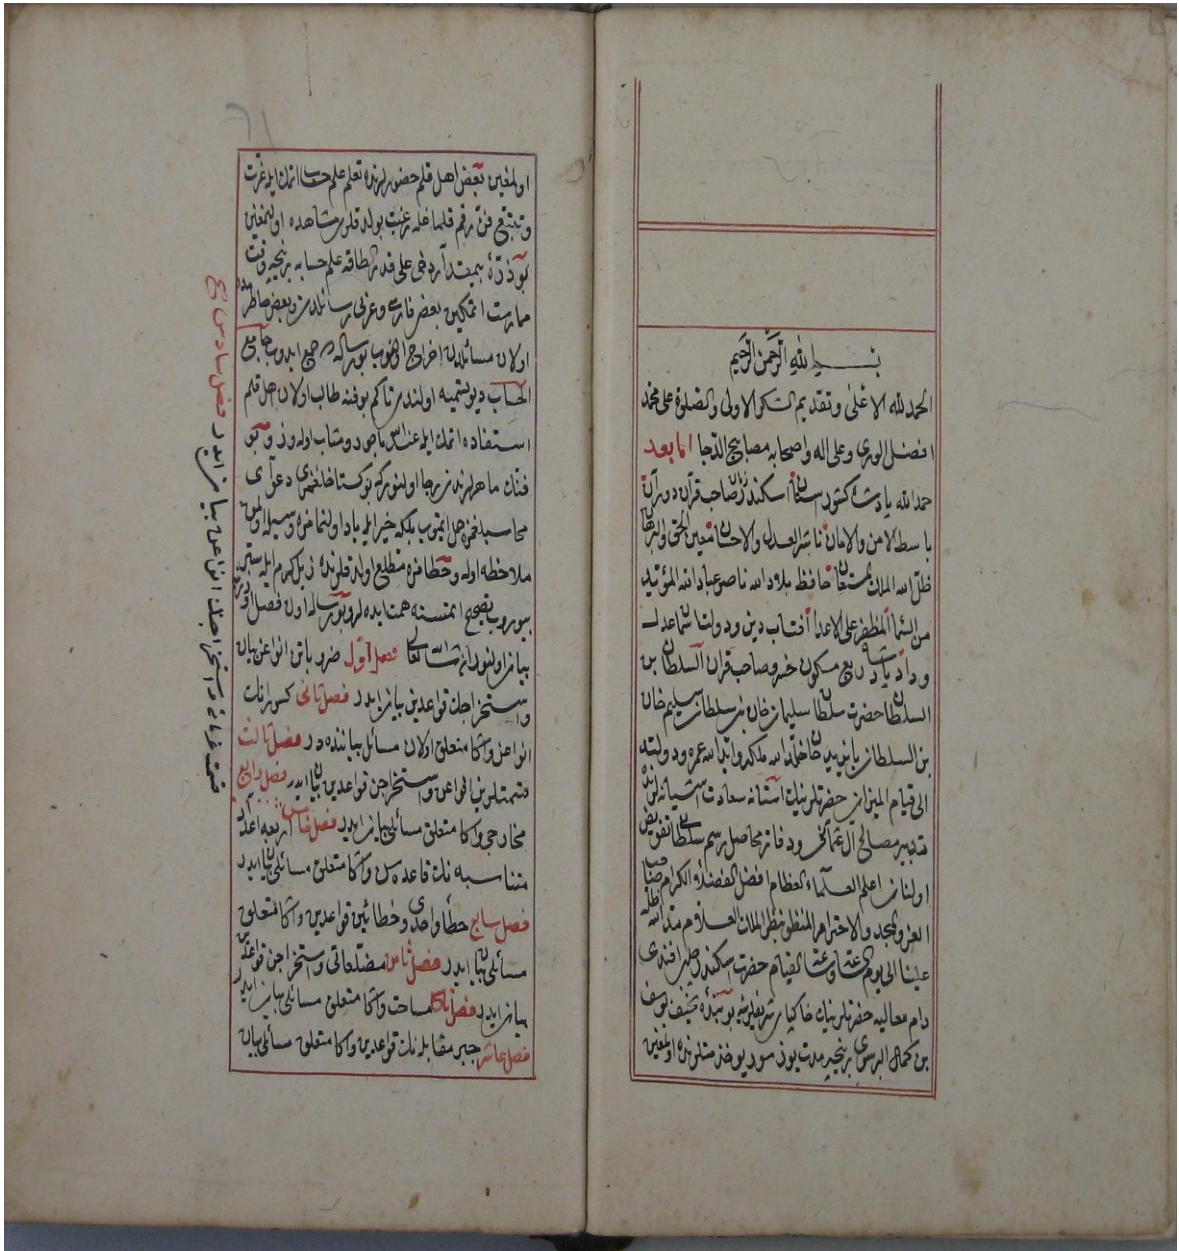 بسم الله الرحمن الرحيم
الحمد لله الاعلى وتقديم الشكر الاولى والصلوة على محمد
افضل الورى وعلى اله واصحابه مصابيح الدجا اما بعد
حمد الله پادشاه كشورستان اسكندر نشان صاحب قران دوران
باسط الامن والامان ناشر العدل والاحسان معين الحق والبرهان
ظل الله الملك المستعان حافظ بلاد الله ناصر عباد الله المؤيد
من السما المظفر على الاعدا آفتاب دين ودولت
ربع مسكون خسرو صاحب قران السلطان بن
السلطان حضرت سلطان سليمان خان بن سلطان سليم خان
بن السلطان بايزيد خان خلد الله ملكه وابد الله عمره ودولته
الى قيام الميزان حضرتلرينك آستانه سعادت آشيانه لرنده
تدبير مصالح ال عثمان ودفاتر محاصل رسم تفويض
اولنان اعلم العلماء العظام افضل الفضلاء الكرام صاحب
العز والمجد والاحترام المنظور بنظر الملك العلام مد الله ظله
علينا الى يوم القيام حضرت اسكندر چلبى افندى
دام معاليه حضرتلرينك خاكپاى شريفلرينه بو بنده نحيف يوسف
بن كمال البرسوى برنجه مدت يوز سوريوب خدمتلرنده اولمغين
اولمغين بعض اهل قلم حضورلرنده تعلم علم حساب اتمك ايله غيرت
وتتبع فن رقم قلماغله رغبت بولدقلرى مشاهده اولنمغين
بو ذره بيمقدار دخى على قدر الطاقه علم حسابه برنجه وقت
ممارست اتمكين بعض فارسى وعربى رسائلدن وبعض خاطرده
اولان مسائلدن اخراج اولنوب بو رساله جمع ايدوب جامع
الحساب ديو تسميه اولندى تاكم بو فنه طالب اولان اهل قلم
استفاده اتمك ايله عند الناس ماجور ومثاب اوله وز وبو
فنك ماهرلرندن رجا اولنور كه بو كستاخلغمزى دعواى
محاسبلغمزه حمل ايتميوب بلكه خير ايله ياد اولنمامزه وسيله اولمق
ملاحظه اوله وخطامزه مطلع اولدقلرنده ذيل كرم ايله ستر
بيوروب تصحيح ايتمسنه همت ايده لر وبو رساله اون فصل اوزره
بيان اولنور ان شاء الله تعالى فصل اول ضروباتن انواعن بيان
واستخراجات قواعدين بيان ايدر فصل ثانى كسوراتك
انواعن واكا متعلق اولان مسائل بياننده در فصل ثالث
قسمتلرين انواعن واستخراجن قواعدين بيان ايدر فصل رابع
مخارجى واكا متعلق مسائلى بيان ايدر فصل خامس اربعه اعداد
متناسبه نك قاعده سن واكا متعلق مسائلى بيان ايدر
فصل سابع خطأ واحدى وخطائين قواعدين واكا متعلق
مسائلى بيان ايدر فصل ثامن مضلعاتى واستخراجن قواعدن
بيان ايدر فصل تاسع مساحت واكا متعلق مسائلى بيان ايدر
فصل عاشر جبر مقابله نك قواعدين واكا متعلق مسائلى بيان
فصل سادس
قسمت غرماى واستخراجات انواعن بيان ايدر